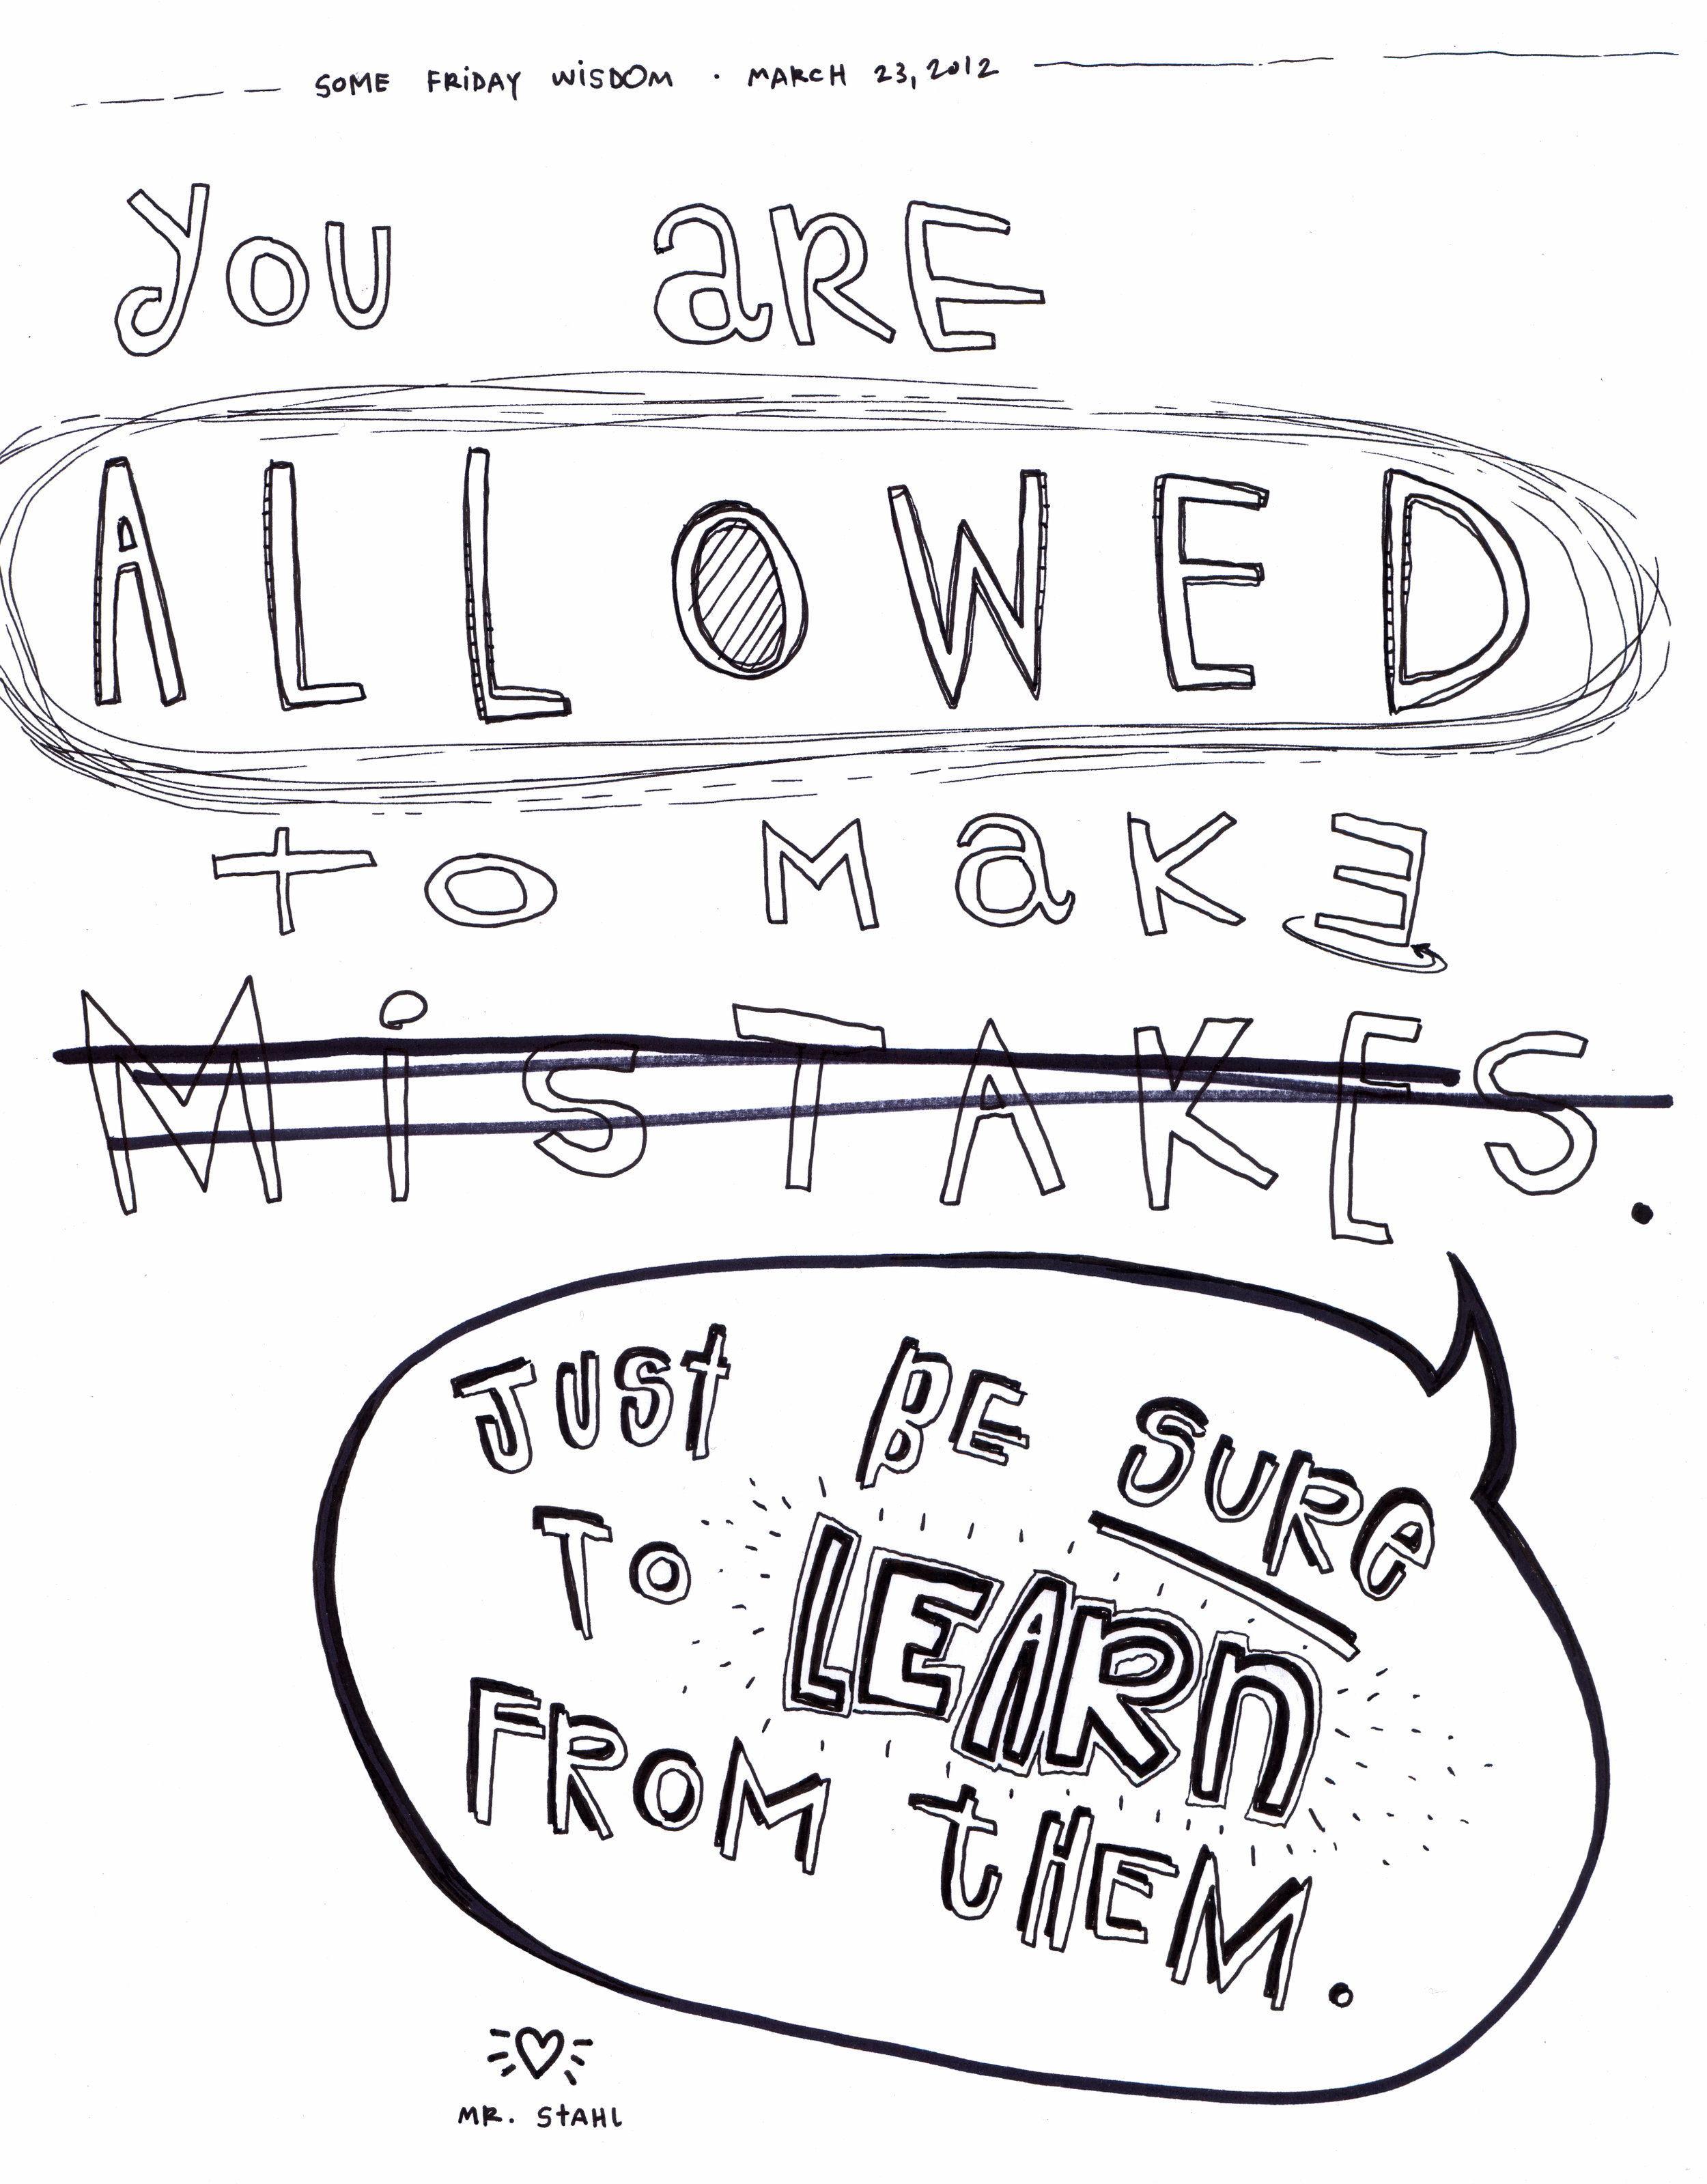 SOME FRiDAY WiSDOM · MARCH 23, 2012
you aRE
ALLOWED
to MaKE
MiSTAKES.
JUSt BE SURe
TO LEARn
FROM tHEM.
MR. StAHL